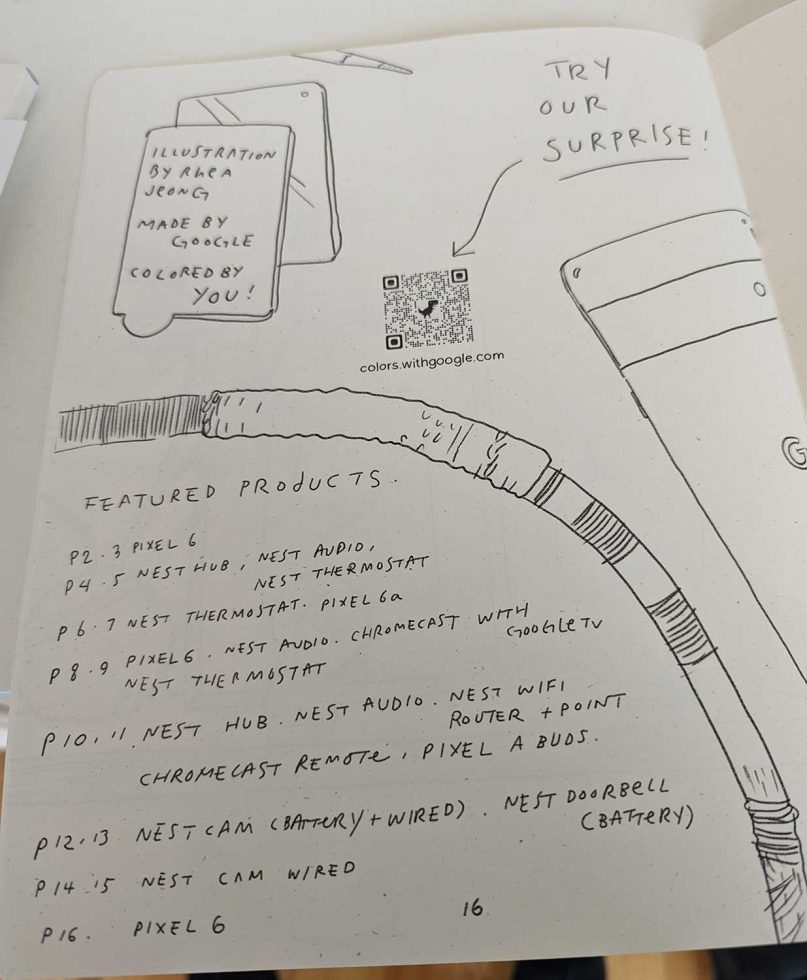 ILLUSTRATION
BY RHEA
JEONG
MADE BY
GOOGLE
COLORED BY
YOU!
TRY
OUR
SURPRISE!
colors.withgoogle.com
G
FEATURED PRODUCTS.
P2.3 PIXEL 6
P4.5 NEST HUB, NEST AUDIO,
NEST THERMOSTAT
P6.7 NEST THERMOSTAT. PIXEL 6a
P8.9 PIXEL 6. NEST AUDIO. CHROMECAST WITH
GOOGLE TV
NEST THERMOSTAT
P10.11. NEST HUB. NEST AUDIO. NEST WIFI
ROUTER + POINT
CHROMECAST REMOTE, PIXEL A BUDS.
P12.13 NEST CAM (BATTERY + WIRED). NEST DOORBELL
(BATTERY)
P14.15 NEST CAM WIRED
P16. PIXEL 6
16